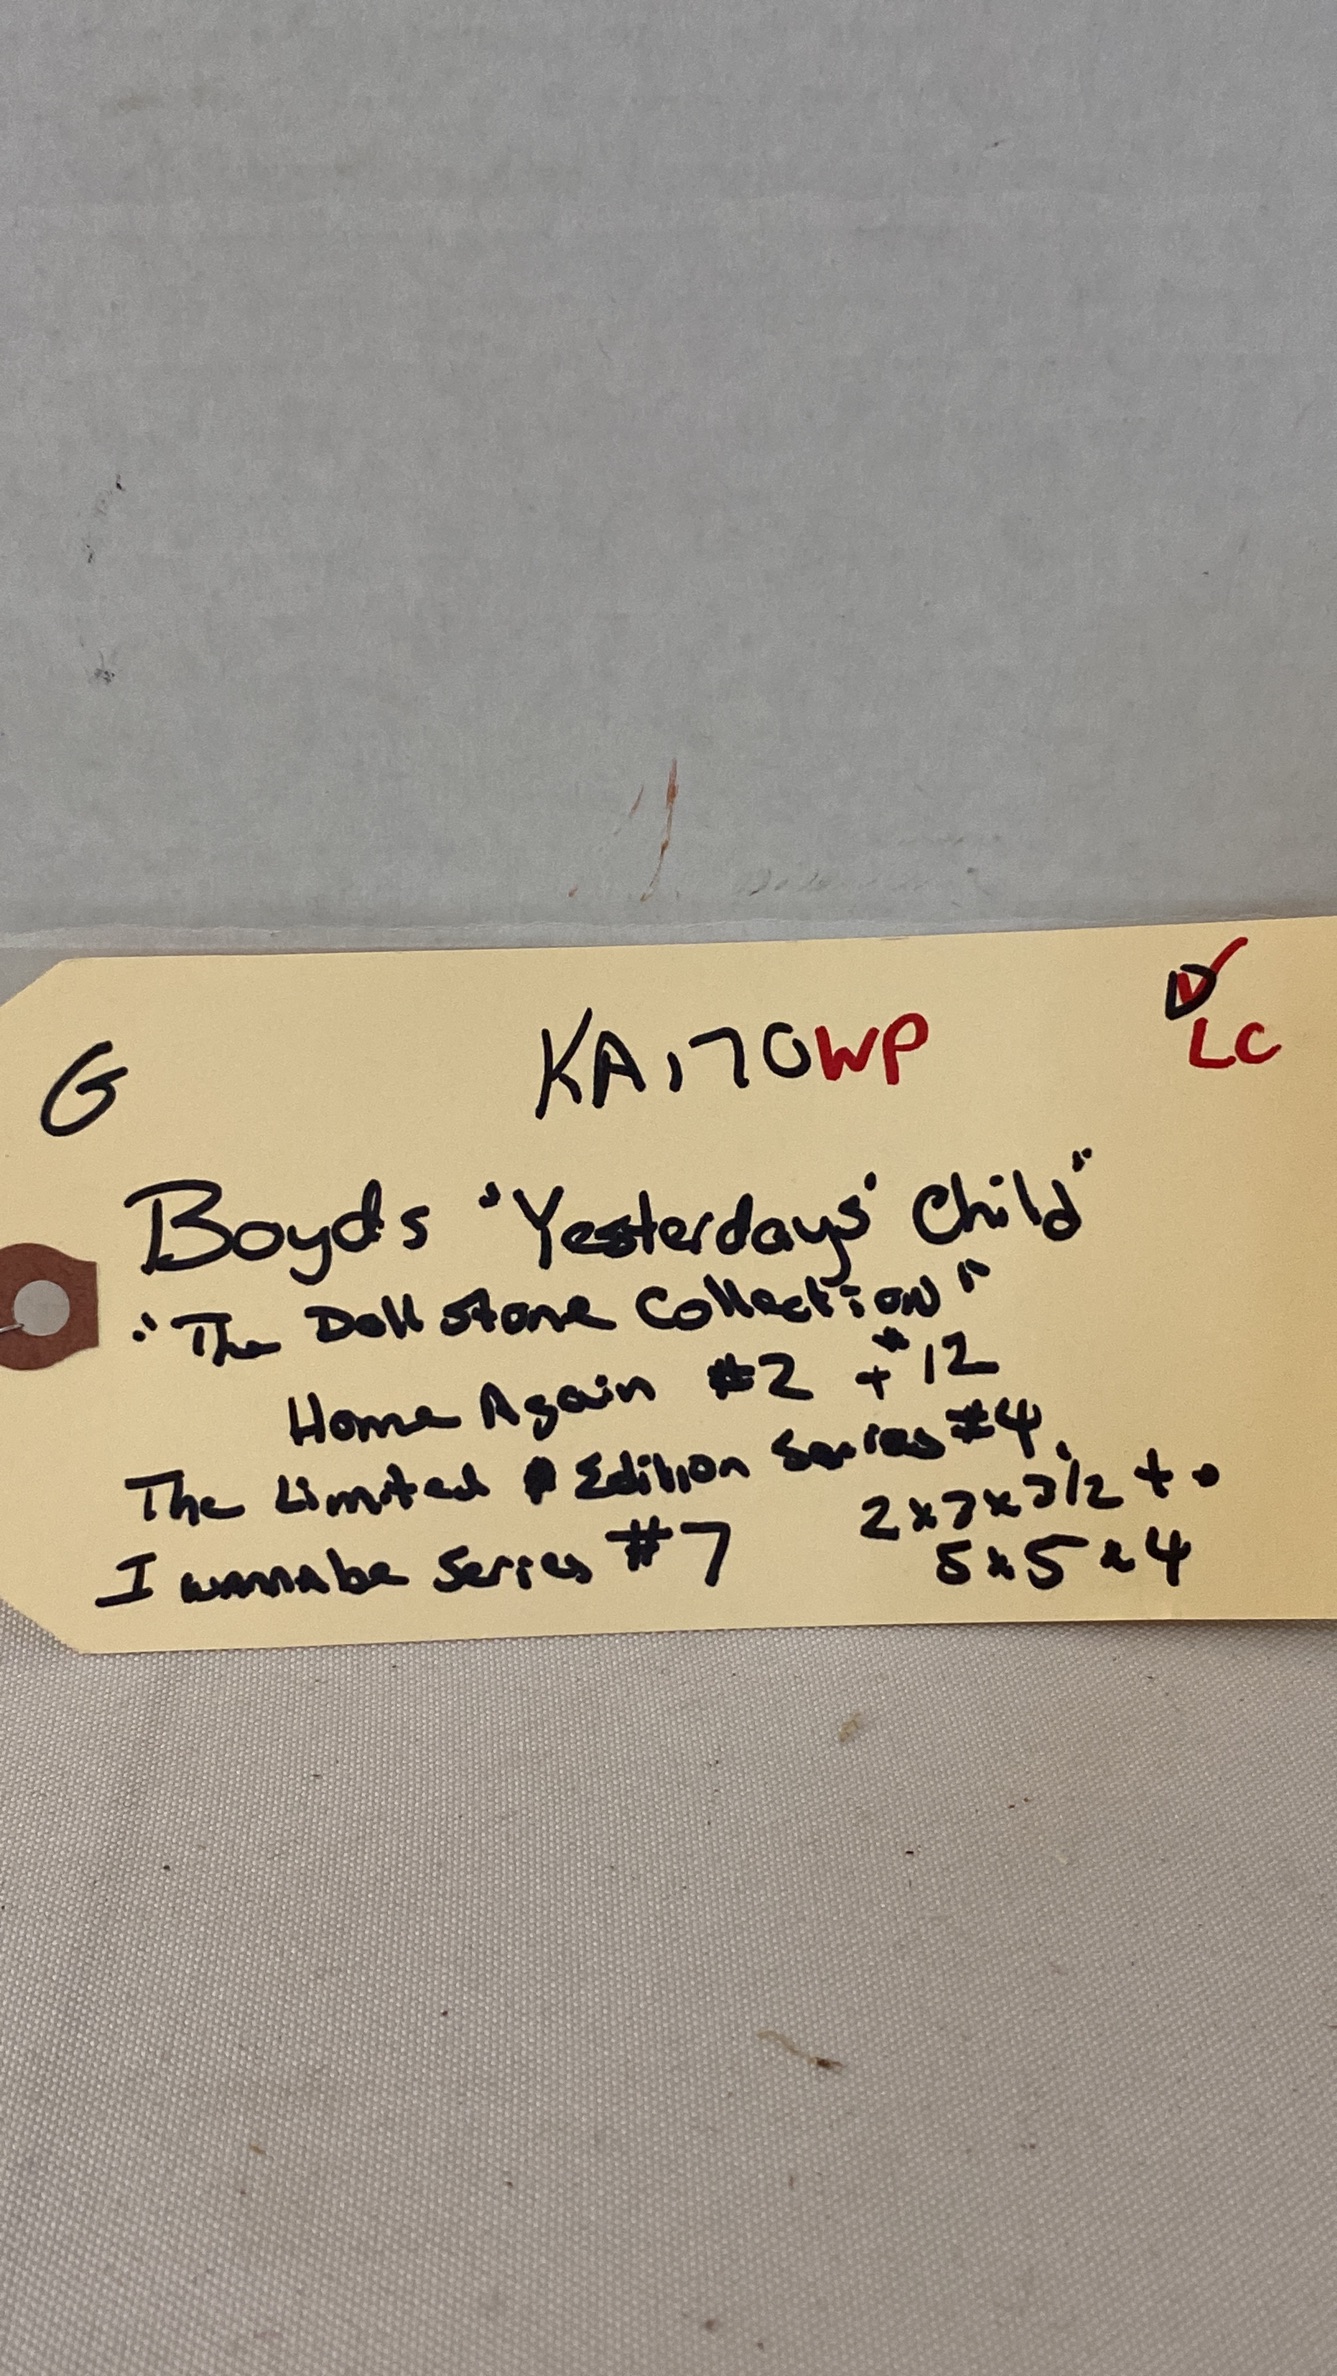 D✓
G KA170WP LC
Boyds "Yesterdays' Child"
"The Doll stone Collection"
Home Again #2 + #12
The Limited Edition Series #4
I wannabe Series #7 2x3x3 1/2 to
5x5x4